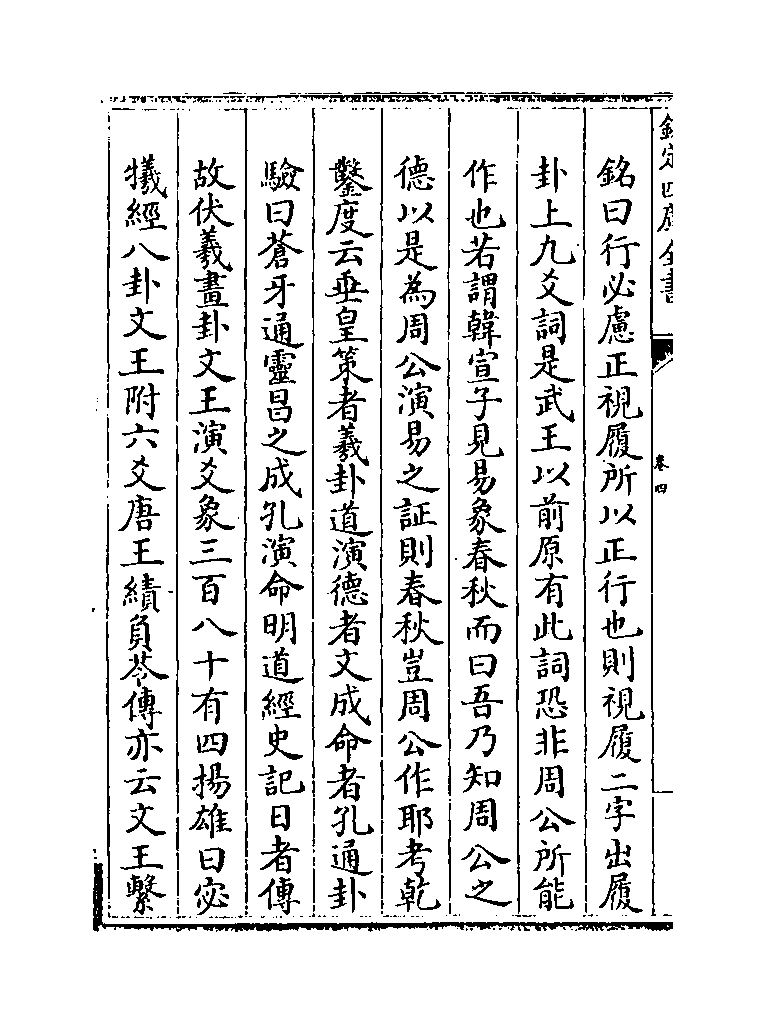 欽定四庫全書
卷四
銘曰行必慮正視履所以正行也則視履二字出履
卦上九爻詞是武王以前原有此詞恐非周公所能
作也若謂韓宣子見易象春秋而曰吾乃知周公之
德以是為周公演易之証則春秋豈周公作耶考乾
鑿度云垂皇策者羲卦道演德者文成命者孔通卦
驗曰蒼牙通靈昌之成孔演命明道經史記日者傳
故伏羲畫卦文王演爻象三百八十有四揚雄曰宓
犧經八卦文王附六爻唐王績負苓傳亦云文王繫